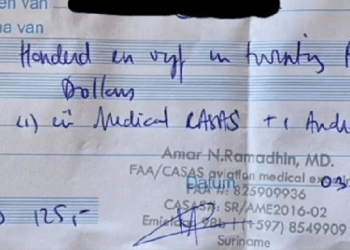 en van
na van
Honderd en vyf en twintig
Dollars
(1) één Medical CASAS + 1 And
Amar N.Ramadhin, MD.
FAA/CASAS aviation medical ex
Datum 03
FAA #: 825909936
CASAS#: SR/AME2016-02
98b (+597) 8549909
Suriname
125,-